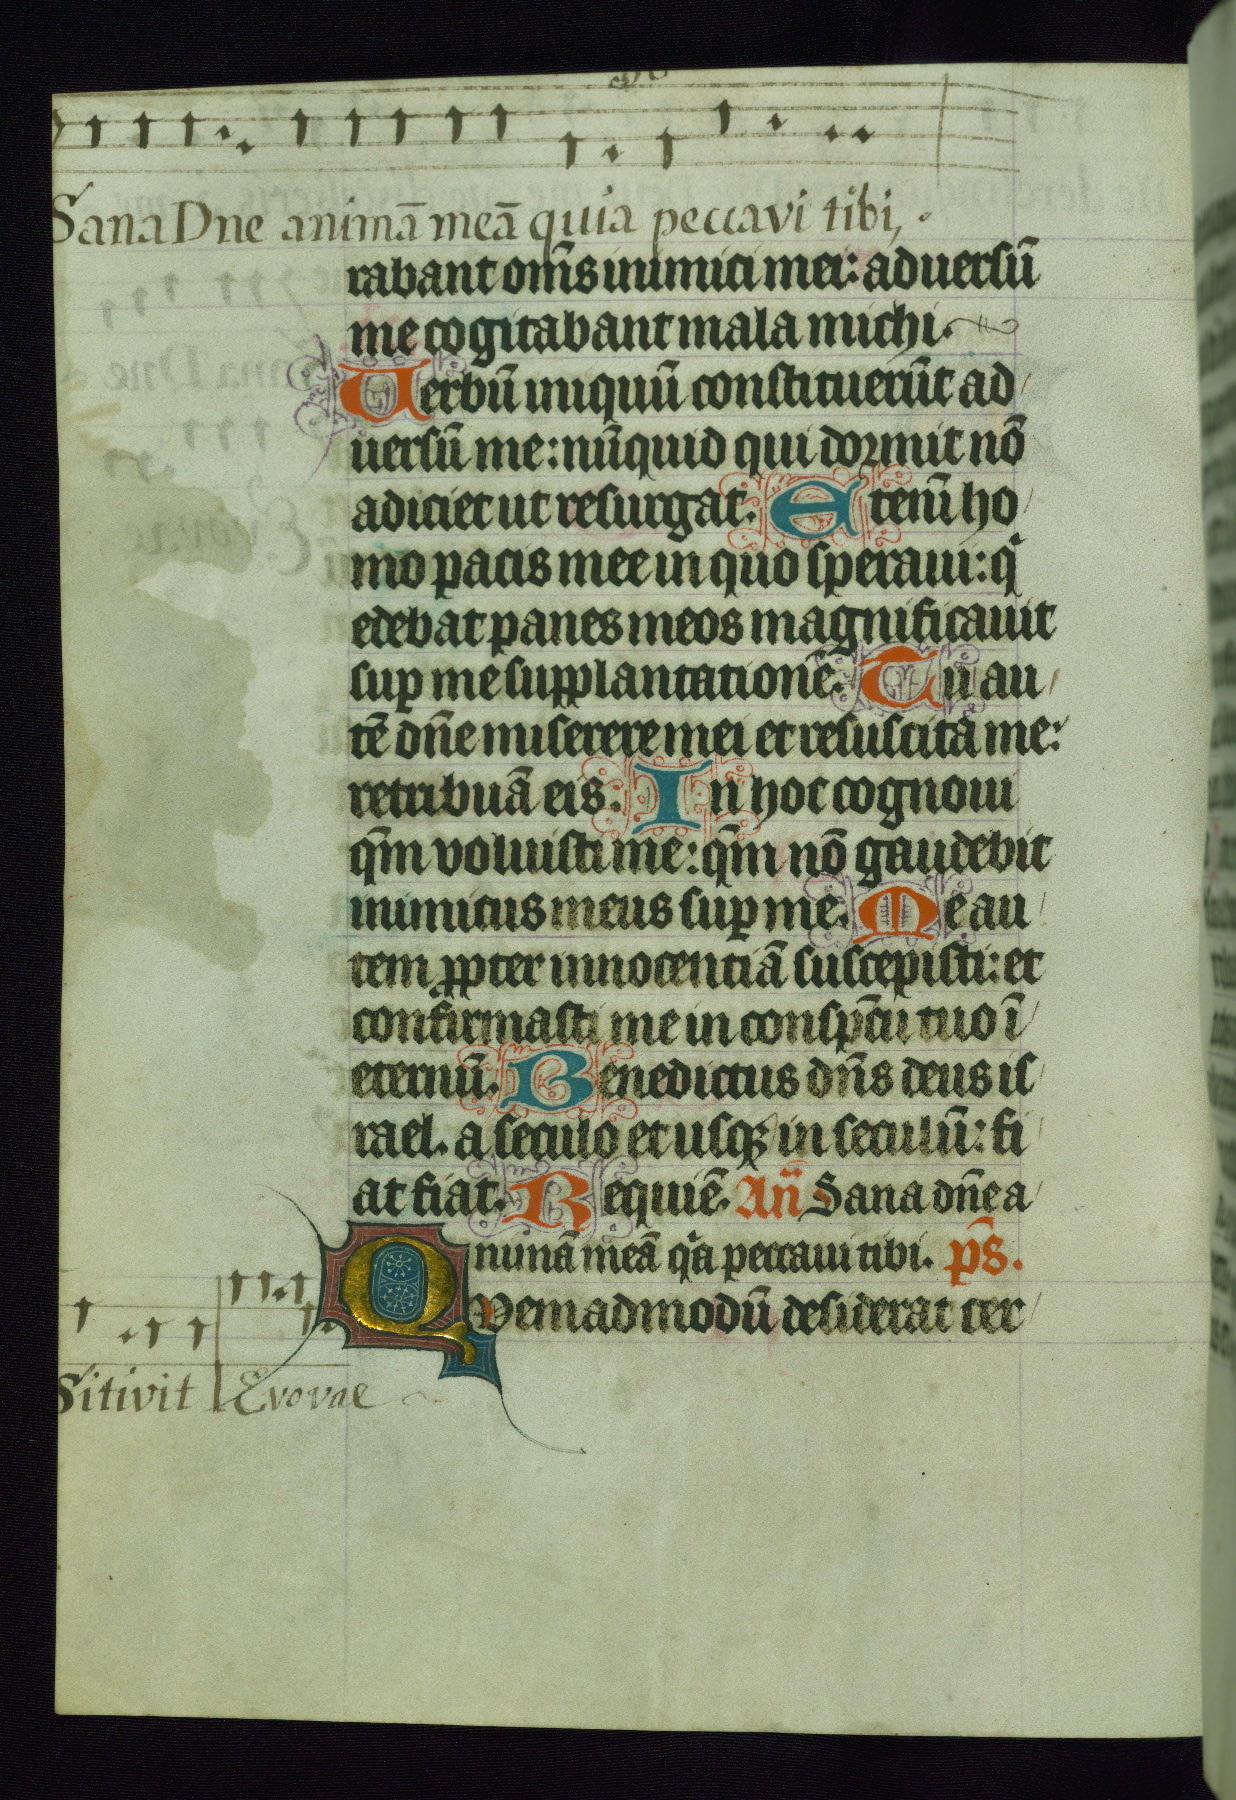 Sana Dne animā meā quia peccavi tibi,.
rabant om̄s inimici mei: aduersū
me cogitabant mala michi.
Uerbū iniquū constituerūt ad
uersū me: nūquid qui dormit nō
adiciet ut resurgat. Eteni̅ ho
mo pacis mee in quo speraui: qͥ
edebat panes meos magnificauit
suꝑ me supplantationē. Tu au
tē dn̄e miserere mei et resuscita me:
retribuā eis. In hoc cognoui
qm̄ voluisti me: qm̄ nō gaudebit
inimicus meus suꝑ me. Me au
tem ꝓpter innocentiā suscepisti: et
confirmasti me in consp̄cu tuo ī
eternū. Benedictus dn̄s deus is
rael. a seculo et usqꝫ in seculū: fi
at fiat. Requiē. An̄ Sana dn̄e a
nimā meā qͥa peccaui tibi. ps̄.
Quemadmodū desiderat cer
Sitivit Evovae